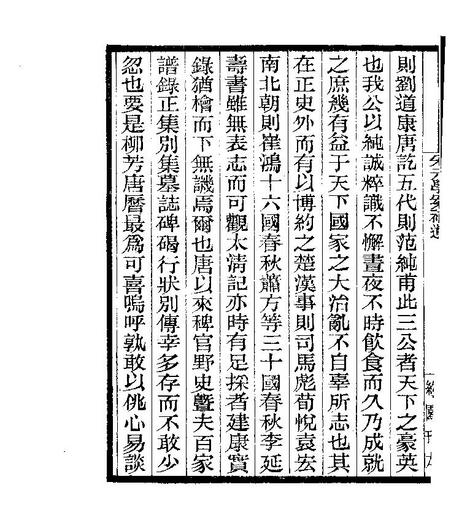 則劉道康唐訖五代則范純甫此三公者天下之豪英
也我公以純誠粹識不懈晝夜不時飲食而久乃成就
之庶幾有益于天下國家之大治亂不自辜所志也其
在正史外而有以博約之楚漢事則司馬彪荀悅袁宏
南北朝則崔鴻十六國春秋蕭方等三十國春秋李延
壽書雖無表志而可觀太清記亦時有足採者建康實
錄猶檜而下無譏焉爾也唐以來稗官野史暨夫百家
譜錄正集別集墓誌碑碣行狀別傳幸多存而不敢少
忽也要是柳芳唐曆最為可喜嗚呼孰敢以佻心易談